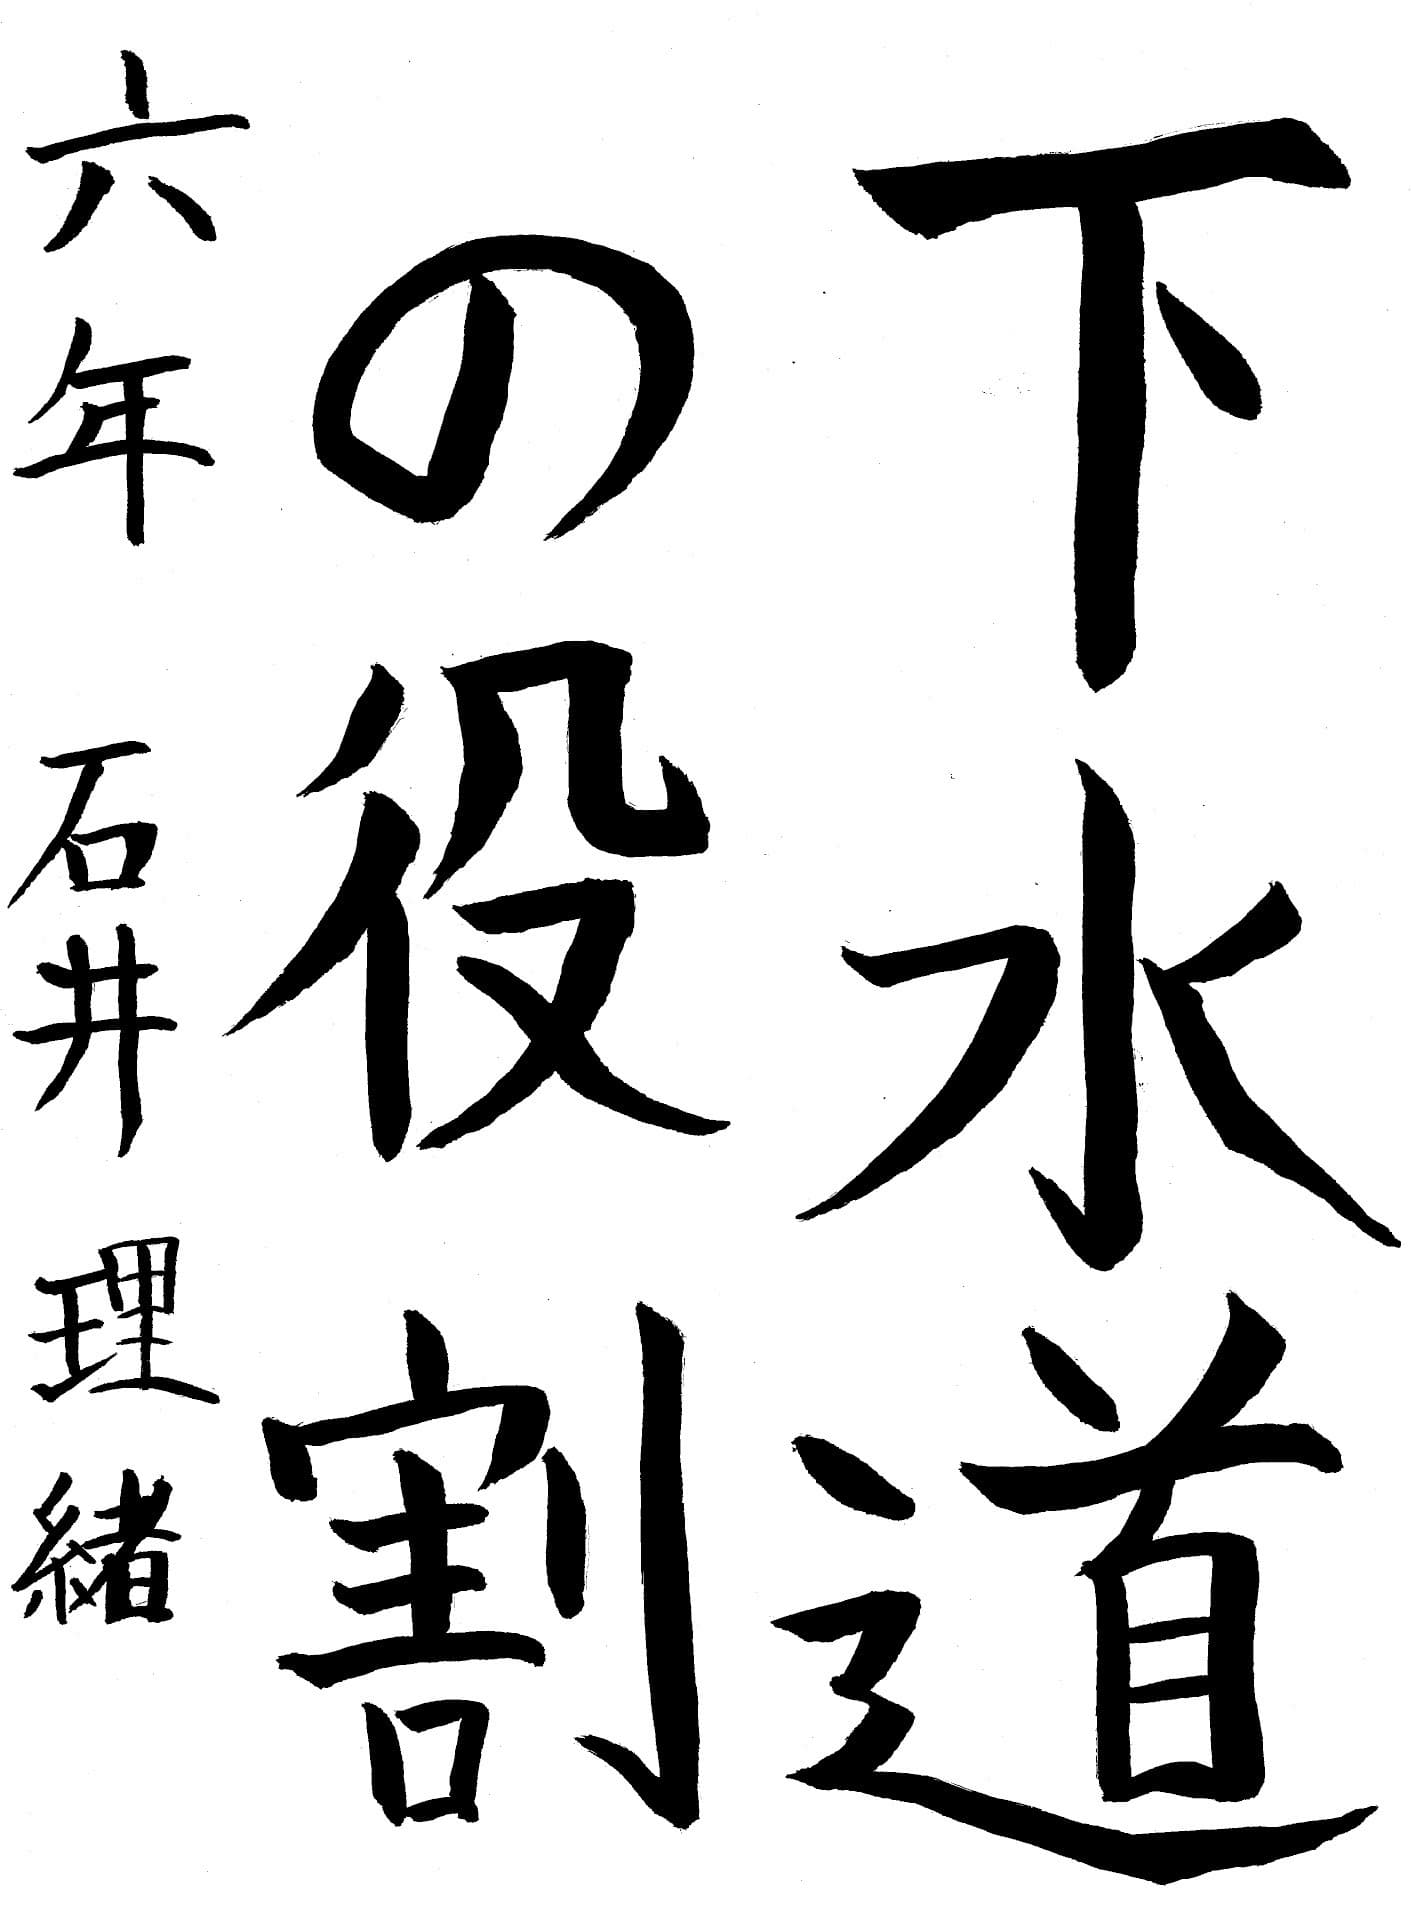 下水道
の役割
六年 石井 理緒